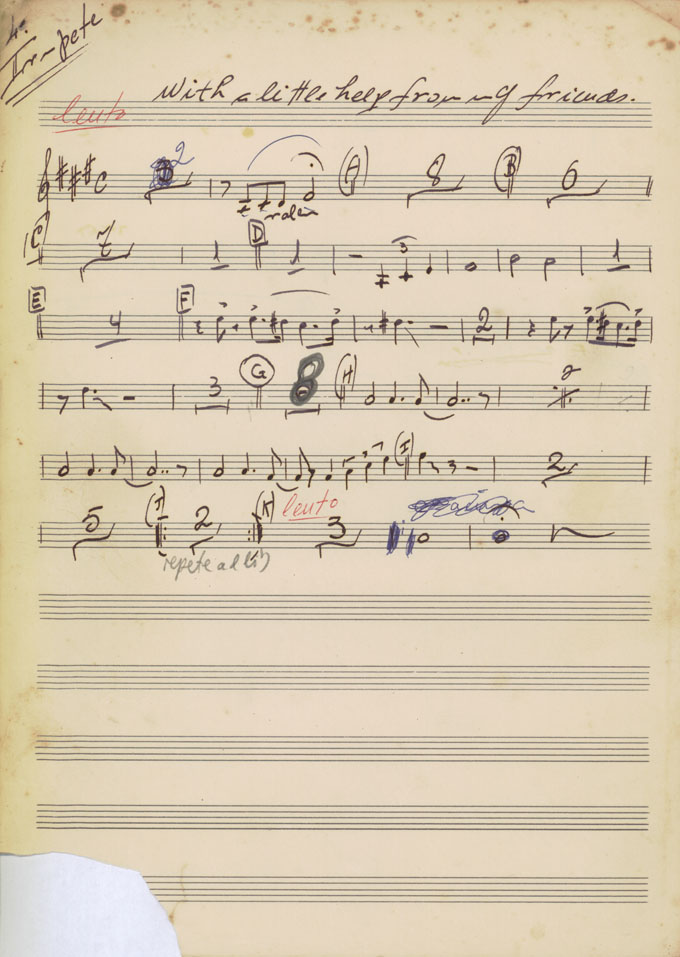 4.
Trompete
With a little help from my friends.
lento
2
A 8 B 6
ralen
C 7 1 D 1 3 1
E 4 F 2
3 G 8 H 2
I 2
5 2 K lento 3
repete ad lib